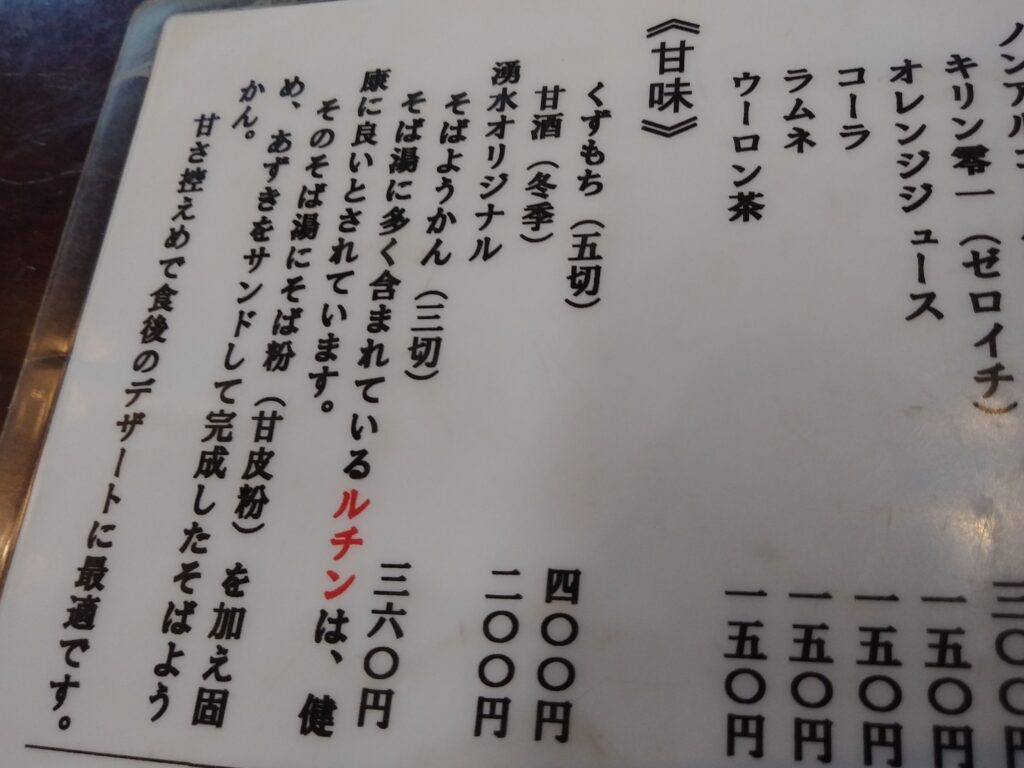 ンアルコ
キリン零一（ゼロイチ） 三〇〇
オレンジジュース 一五〇円
コーラ 一五〇円
ラムネ 一五〇円
ウーロン茶 一五〇円
《甘味》
くずもち（五切） 四〇〇円
甘酒（冬季） 二〇〇円
湧水オリジナル
そばようかん（三切） 三六〇円
そば湯に多く含まれているルチンは、健
康に良いとされています。
そのそば湯にそば粉（甘皮粉）を加え固
め、あずきをサンドして完成したそばよう
かん。
甘さ控えめで食後のデザートに最適です。